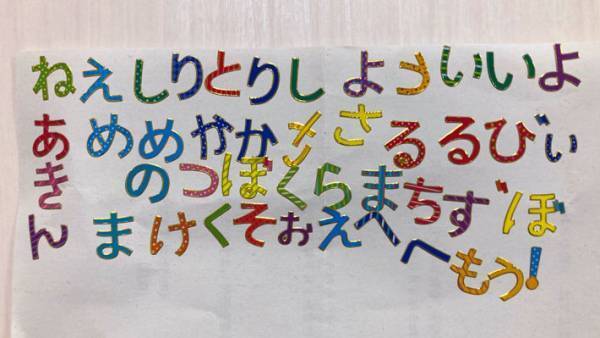 ねえしりとりし よういいよ
あ めめ やかメさるるびぃ
き のつぼくらまちずぼ
ん まけくそぉえへへ
もう!